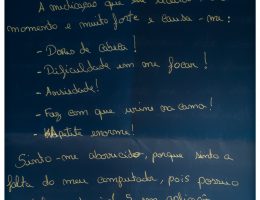 A medicação que
momento é muito forte e causa-me:
- Dores de cabeça!
- Dificuldade em me focar!
- Ansiedade!
- Faz com que urine na cama!
- Apetite enorme!
Sinto-me aborrecido, porque sinto a
falta do meu computador, pois possuo